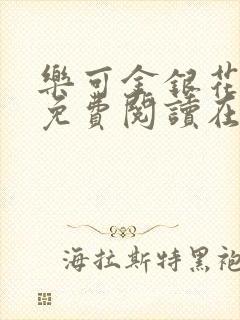 樂可金銀花
免費閱讀在
海拉斯特黑袍